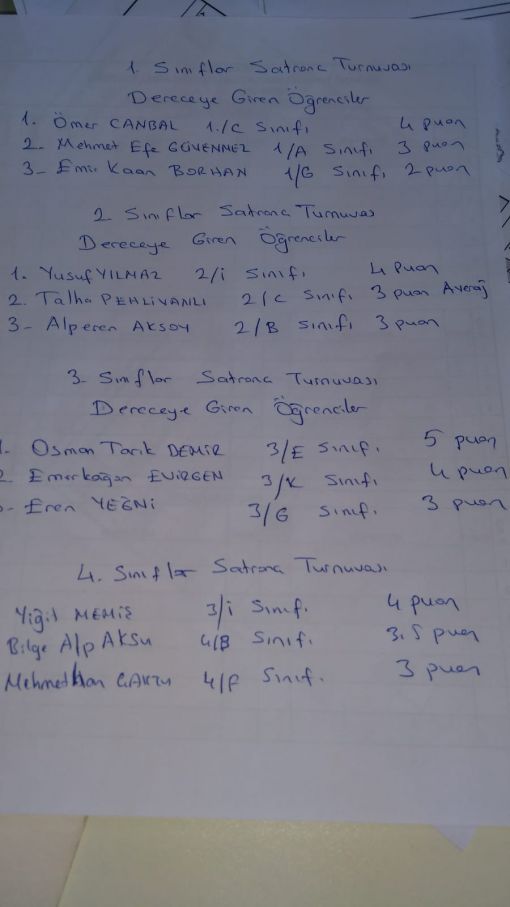 1. Sınıflar Satranç Turnuvası
Dereceye Giren Öğrenciler
1. Ömer CANBAL 1./C Sınıfı 4 puan
2. Mehmet Efe GÜVENMEZ 1/A Sınıfı 3 puan
3- Emir Kaan BORHAN 1/G Sınıfı 2 puan
2. Sınıflar Satranç Turnuvası
Dereceye Giren Öğrenciler
1. Yusuf YILMAZ 2/i Sınıfı 4 Puan
2. Talha PEHLİVANLI 2/C Sınıfı 3 puan Averaj
3- Alperen AKSOY 2/B Sınıfı 3 puan
3. Sınıflar Satranç Turnuvası
Dereceye Giren Öğrenciler
1. Osman Tarık DEMİR 3/E Sınıfı 5 puan
2. Emirkağan EVİRGEN 3/K Sınıfı 4 puan
3- Eren YEĞNİ 3/G Sınıf. 3 puan
4. Sınıflar Satranç Turnuvası
Yiğit MEMİŞ 3/i Sınıf. 4 puan
Bilge Alp AKSU 4/B Sınıf. 3.5 puan
Mehmet Han 4/F Sınıf. 3 puan